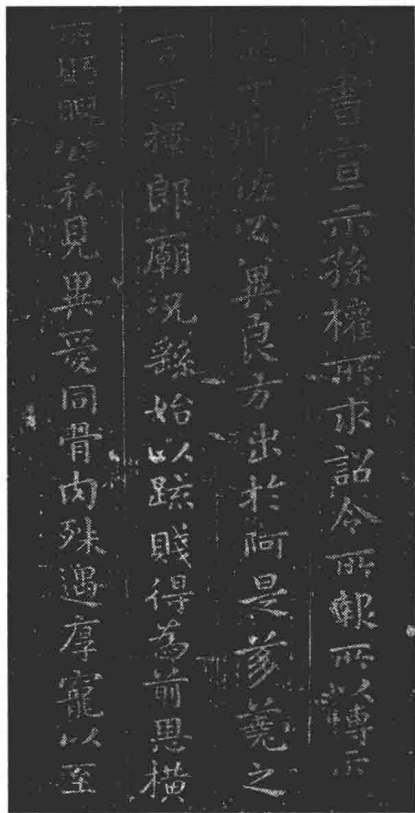 尚書宣示孫權所求詔令所報所以博示
逮于卿佐必異良方出於阿是芻蕘之
言可擇郎廟況繇始以疏賤得為前恩橫
所盼睨公私見異愛同骨肉殊遇厚寵以至